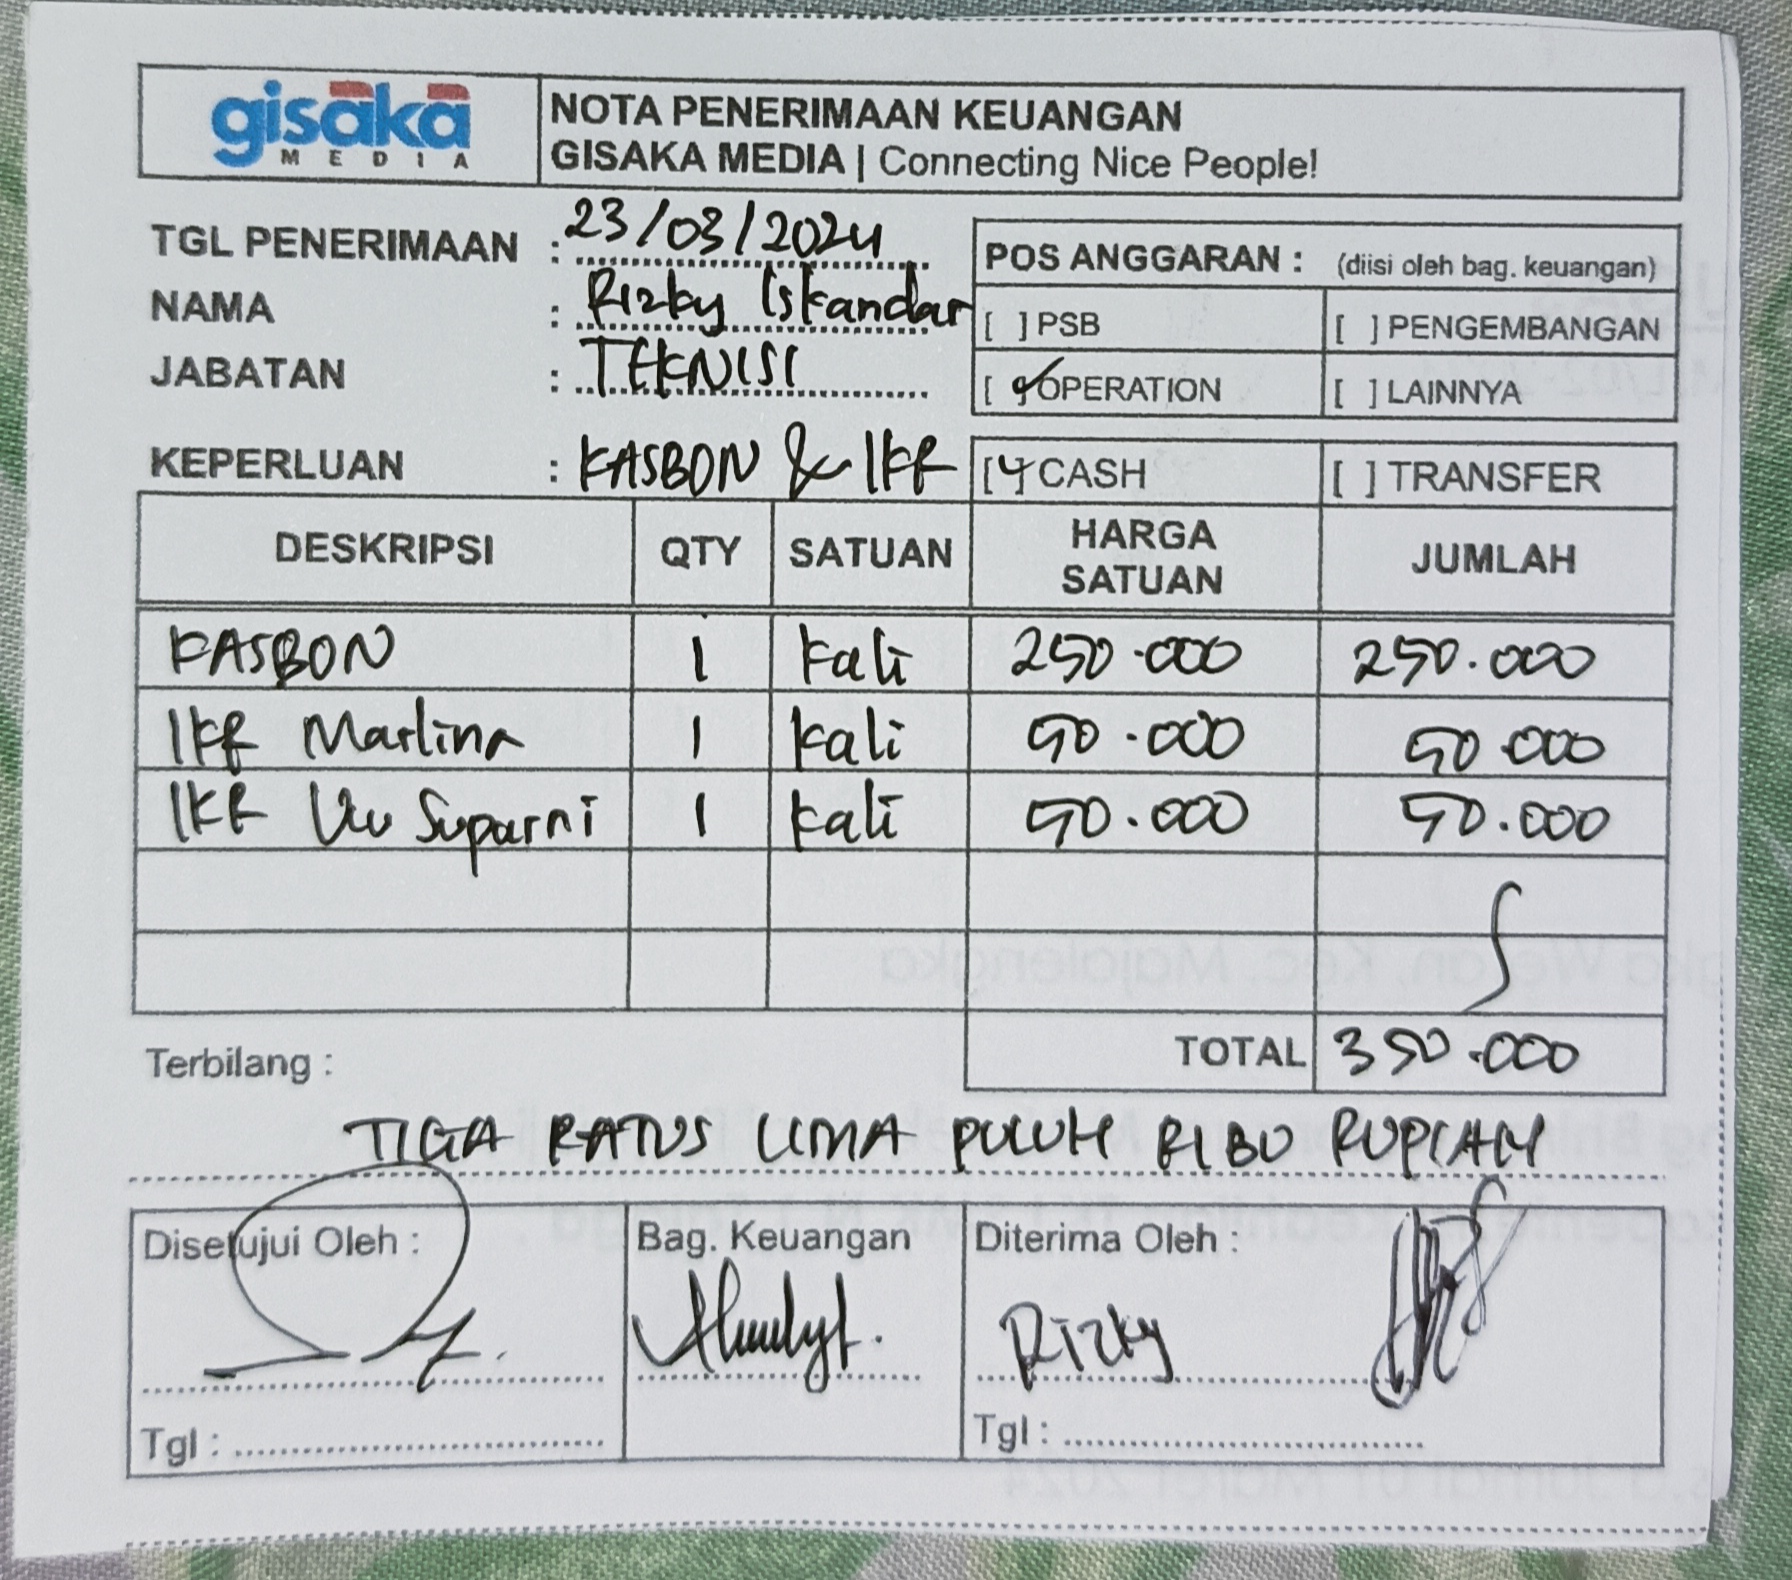 gisaka
MEDIA
NOTA PENERIMAAN KEUANGAN
GISAKA MEDIA | Connecting Nice People!
TGL PENERIMAAN : 23/03/2024
NAMA : Rizky Iskandar
JABATAN : TEKNISI
POS ANGGARAN : (diisi oleh bag. keuangan)
[ ] PSB [ ] PENGEMBANGAN
[✓] OPERATION [ ] LAINNYA
KEPERLUAN : KASBON & IKR [✓] CASH [ ] TRANSFER
DESKRIPSI QTY SATUAN HARGA SATUAN JUMLAH
KASBON 1 kali 250.000 250.000
IKR Marlina 1 kali 50.000 50.000
IKR Suparni 1 kali 50.000 50.000
TOTAL 350.000
Terbilang :
TIGA RATUS LIMA PULUH RIBU RUPIAH
Disetujui Oleh : Bag. Keuangan Diterima Oleh :
Rizky
Tgl : Tgl :